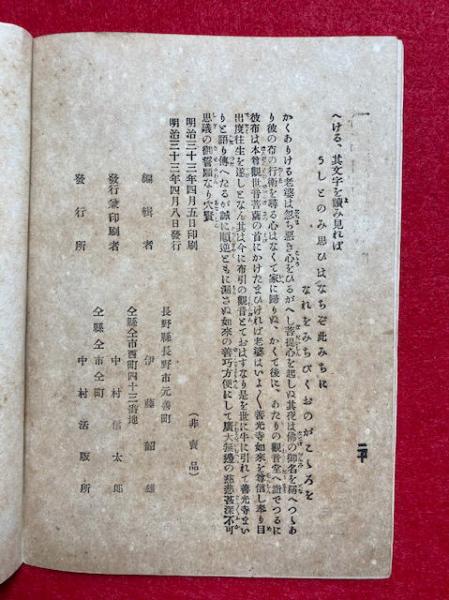 へける、其文字を讀み見れば
うしとのみ思ひはなちそ此みちに
なれをみちびくおのがこゝろを
かくありける老婆は忽ち悪き心をひるがへし菩提心を起しぬ其夜は佛の御名を稱へつゝあ
り彼の布の行衛を尋る心はなくて家に歸りぬ、かくて後に、あたりの觀音堂へ詣でつるに
彼布は本尊觀世音菩薩の首にかけたまひければ老婆はいよ〱善光寺如來を尊信し奉り目
出度往生を遂しとなん其は今に布引の觀音とておはすなり是を世に牛に引れて善光寺まい
りと語り傳へたるが誠に順逆ともに漏さぬ如來の善巧方便にして廣大無邊の慈悲甚深不可
思議の御誓願なり穴賢
二十
明治三十三年四月五日印刷
明治三十三年四月八日發行
(非賣品)
長野縣長野市元善町
編輯者 伊藤韶雄
仝縣仝市西町四十三番地
發行兼印刷者 中村信太郎
仝縣仝市仝町
發行所 中村活版所